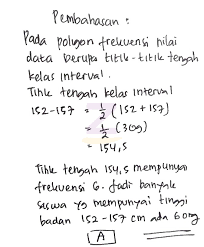 Pembahasan :
Pada poligon frekuensi nilai
data berupa titik-titik tengah
kelas interval.
Titik tengah kelas interval
152-157 = 1/2 (152+157)
= 1/2 (309)
= 154,5
Titik tengah 154,5 mempunyai
frekuensi 6. Jadi banyak
siswa yg mempunyai tinggi
badan 152-157 cm ada 6 orng
A